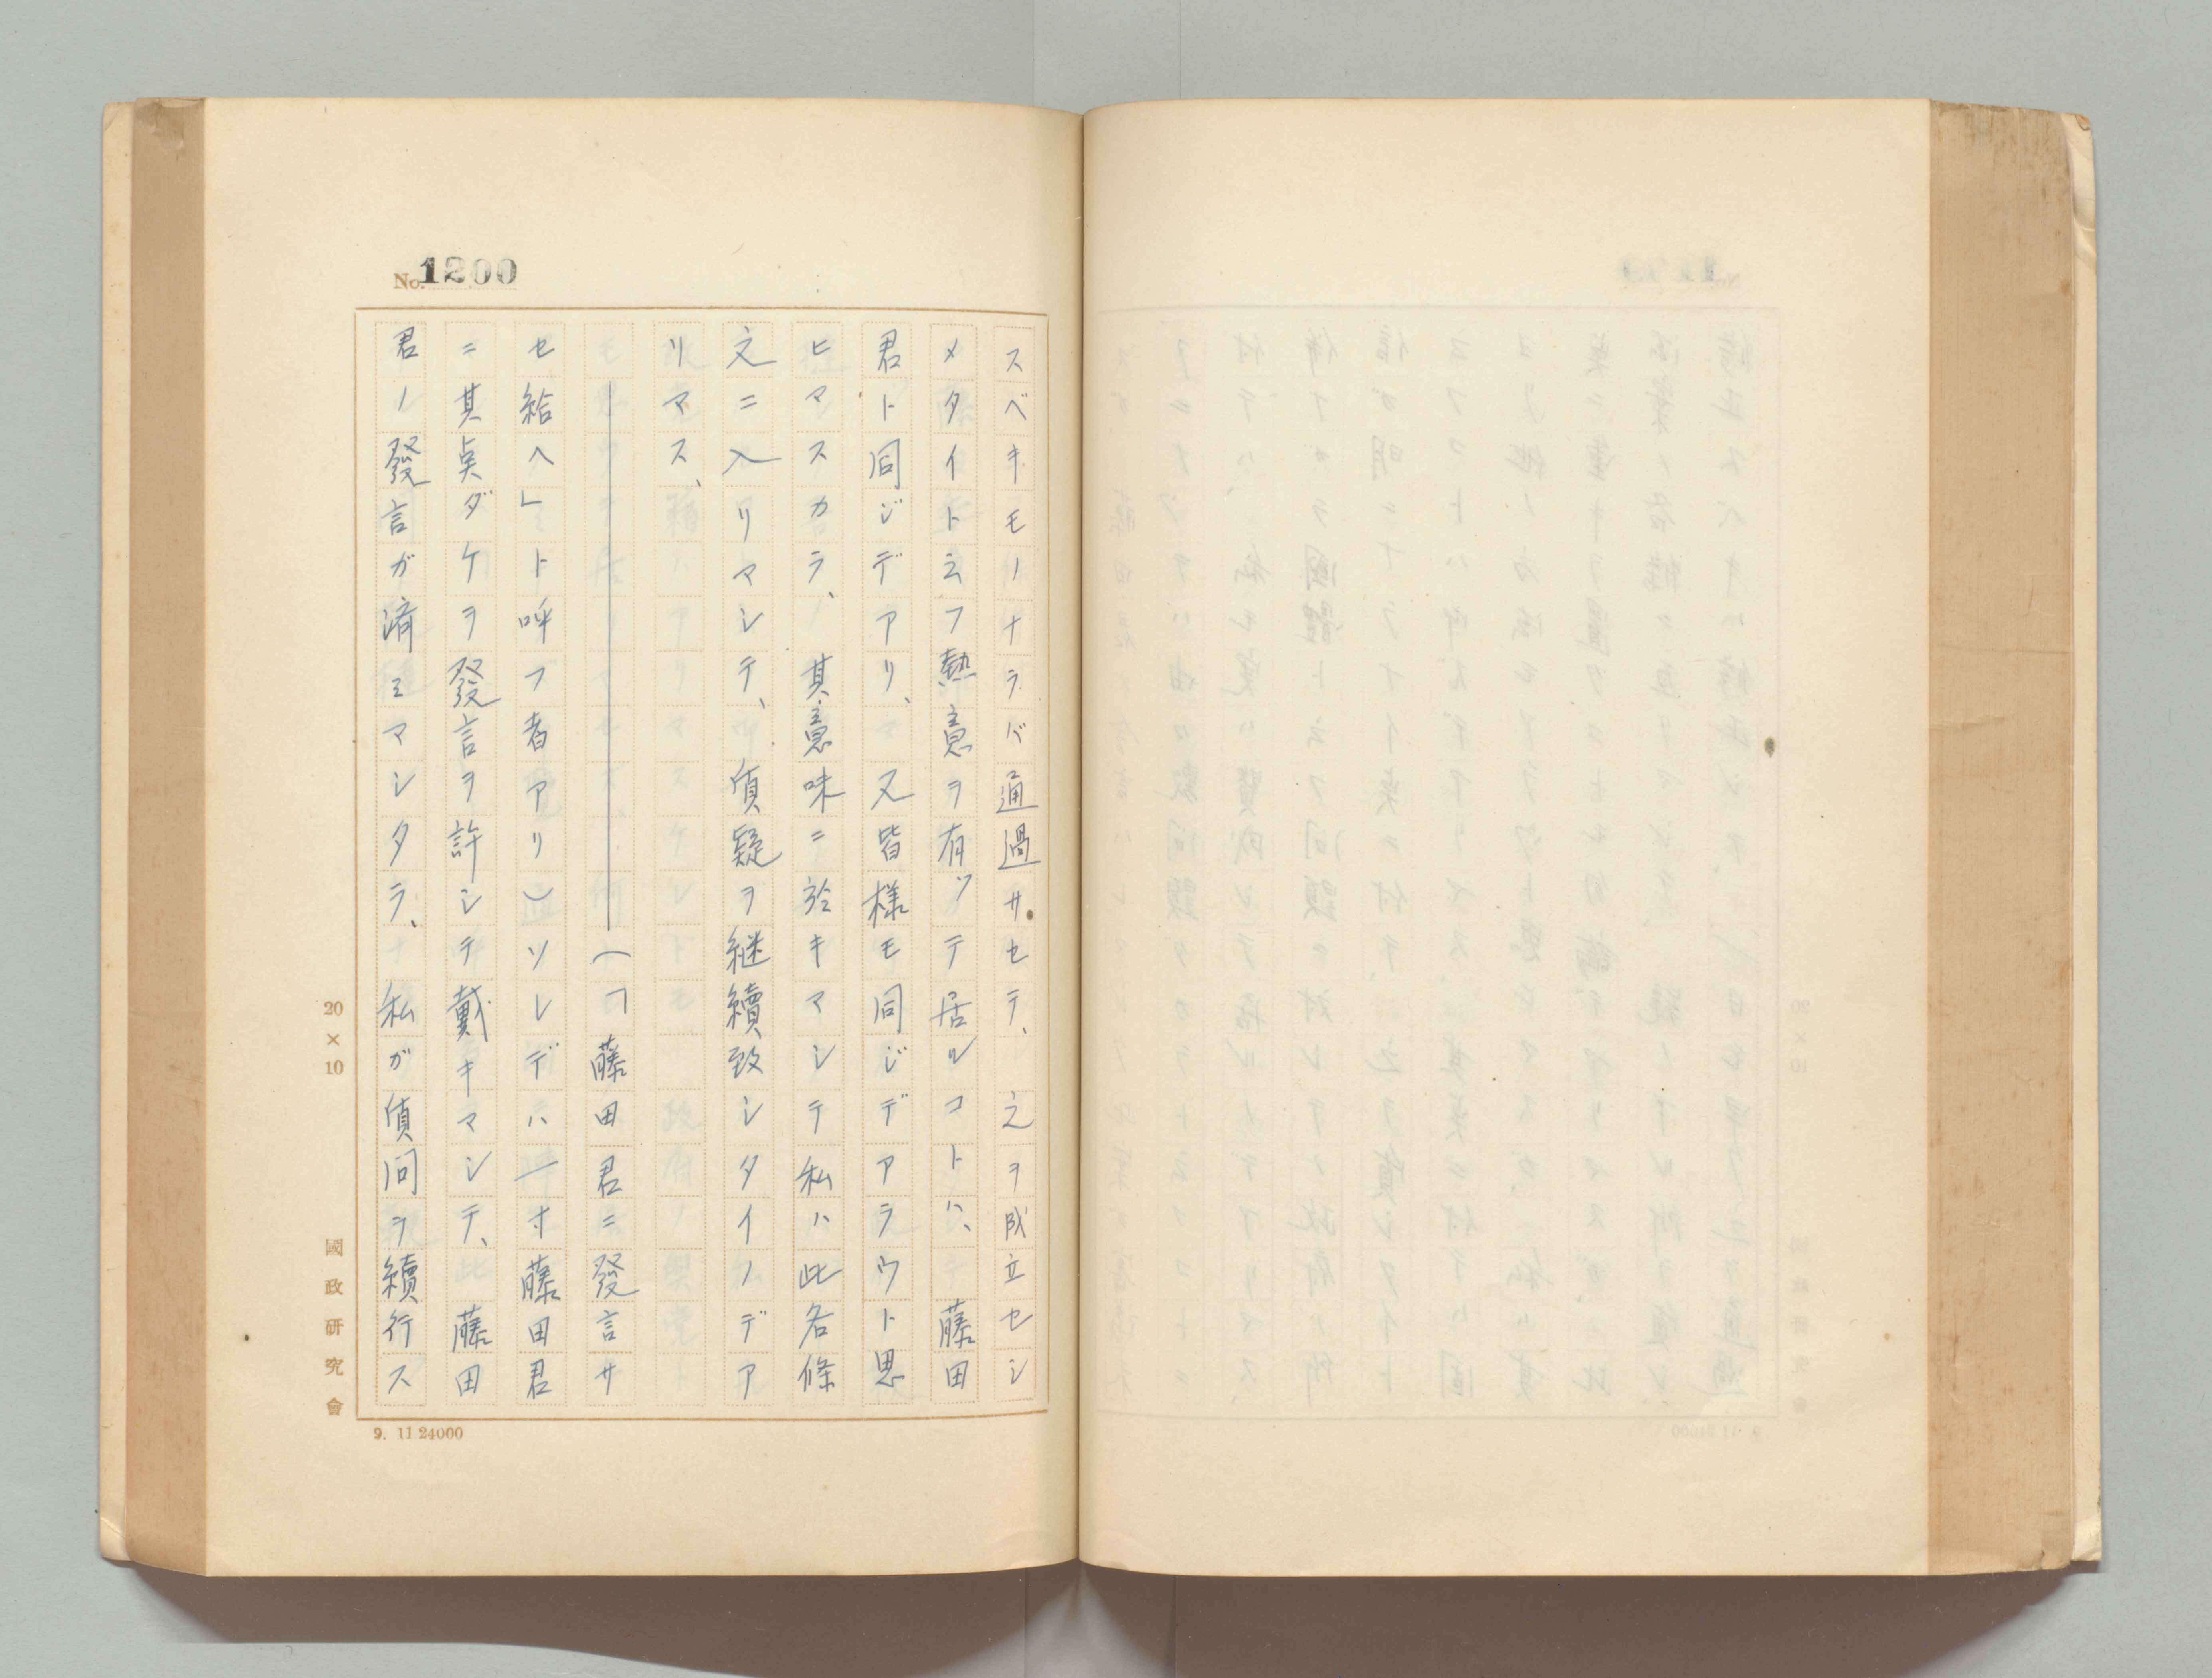 No. 1200
スベキモノナラバ通過サセテ、之ヲ成立セシ
メタイト云フ熱意ヲ有ツテ居ルコトハ、藤田
君ト同ジデアリ、又皆様モ同ジデアラウト思
ヒマスカラ、其意味ニ於キマシテ私ハ此各條
文ニ入リマシテ、質疑ヲ継續致シタイノデア
リマス、
――――――――――(「藤田君ニ發言サ
セ給ヘ」ト呼フ者アリ)ソレデハ一寸藤田君
ニ其点ダケヲ發言ヲ許シテ戴キマシテ、藤田
君ノ發言ガ済ミマシタラ、私ガ質問ヲ續行ス
20×10
國政研究會
9. 11 24000